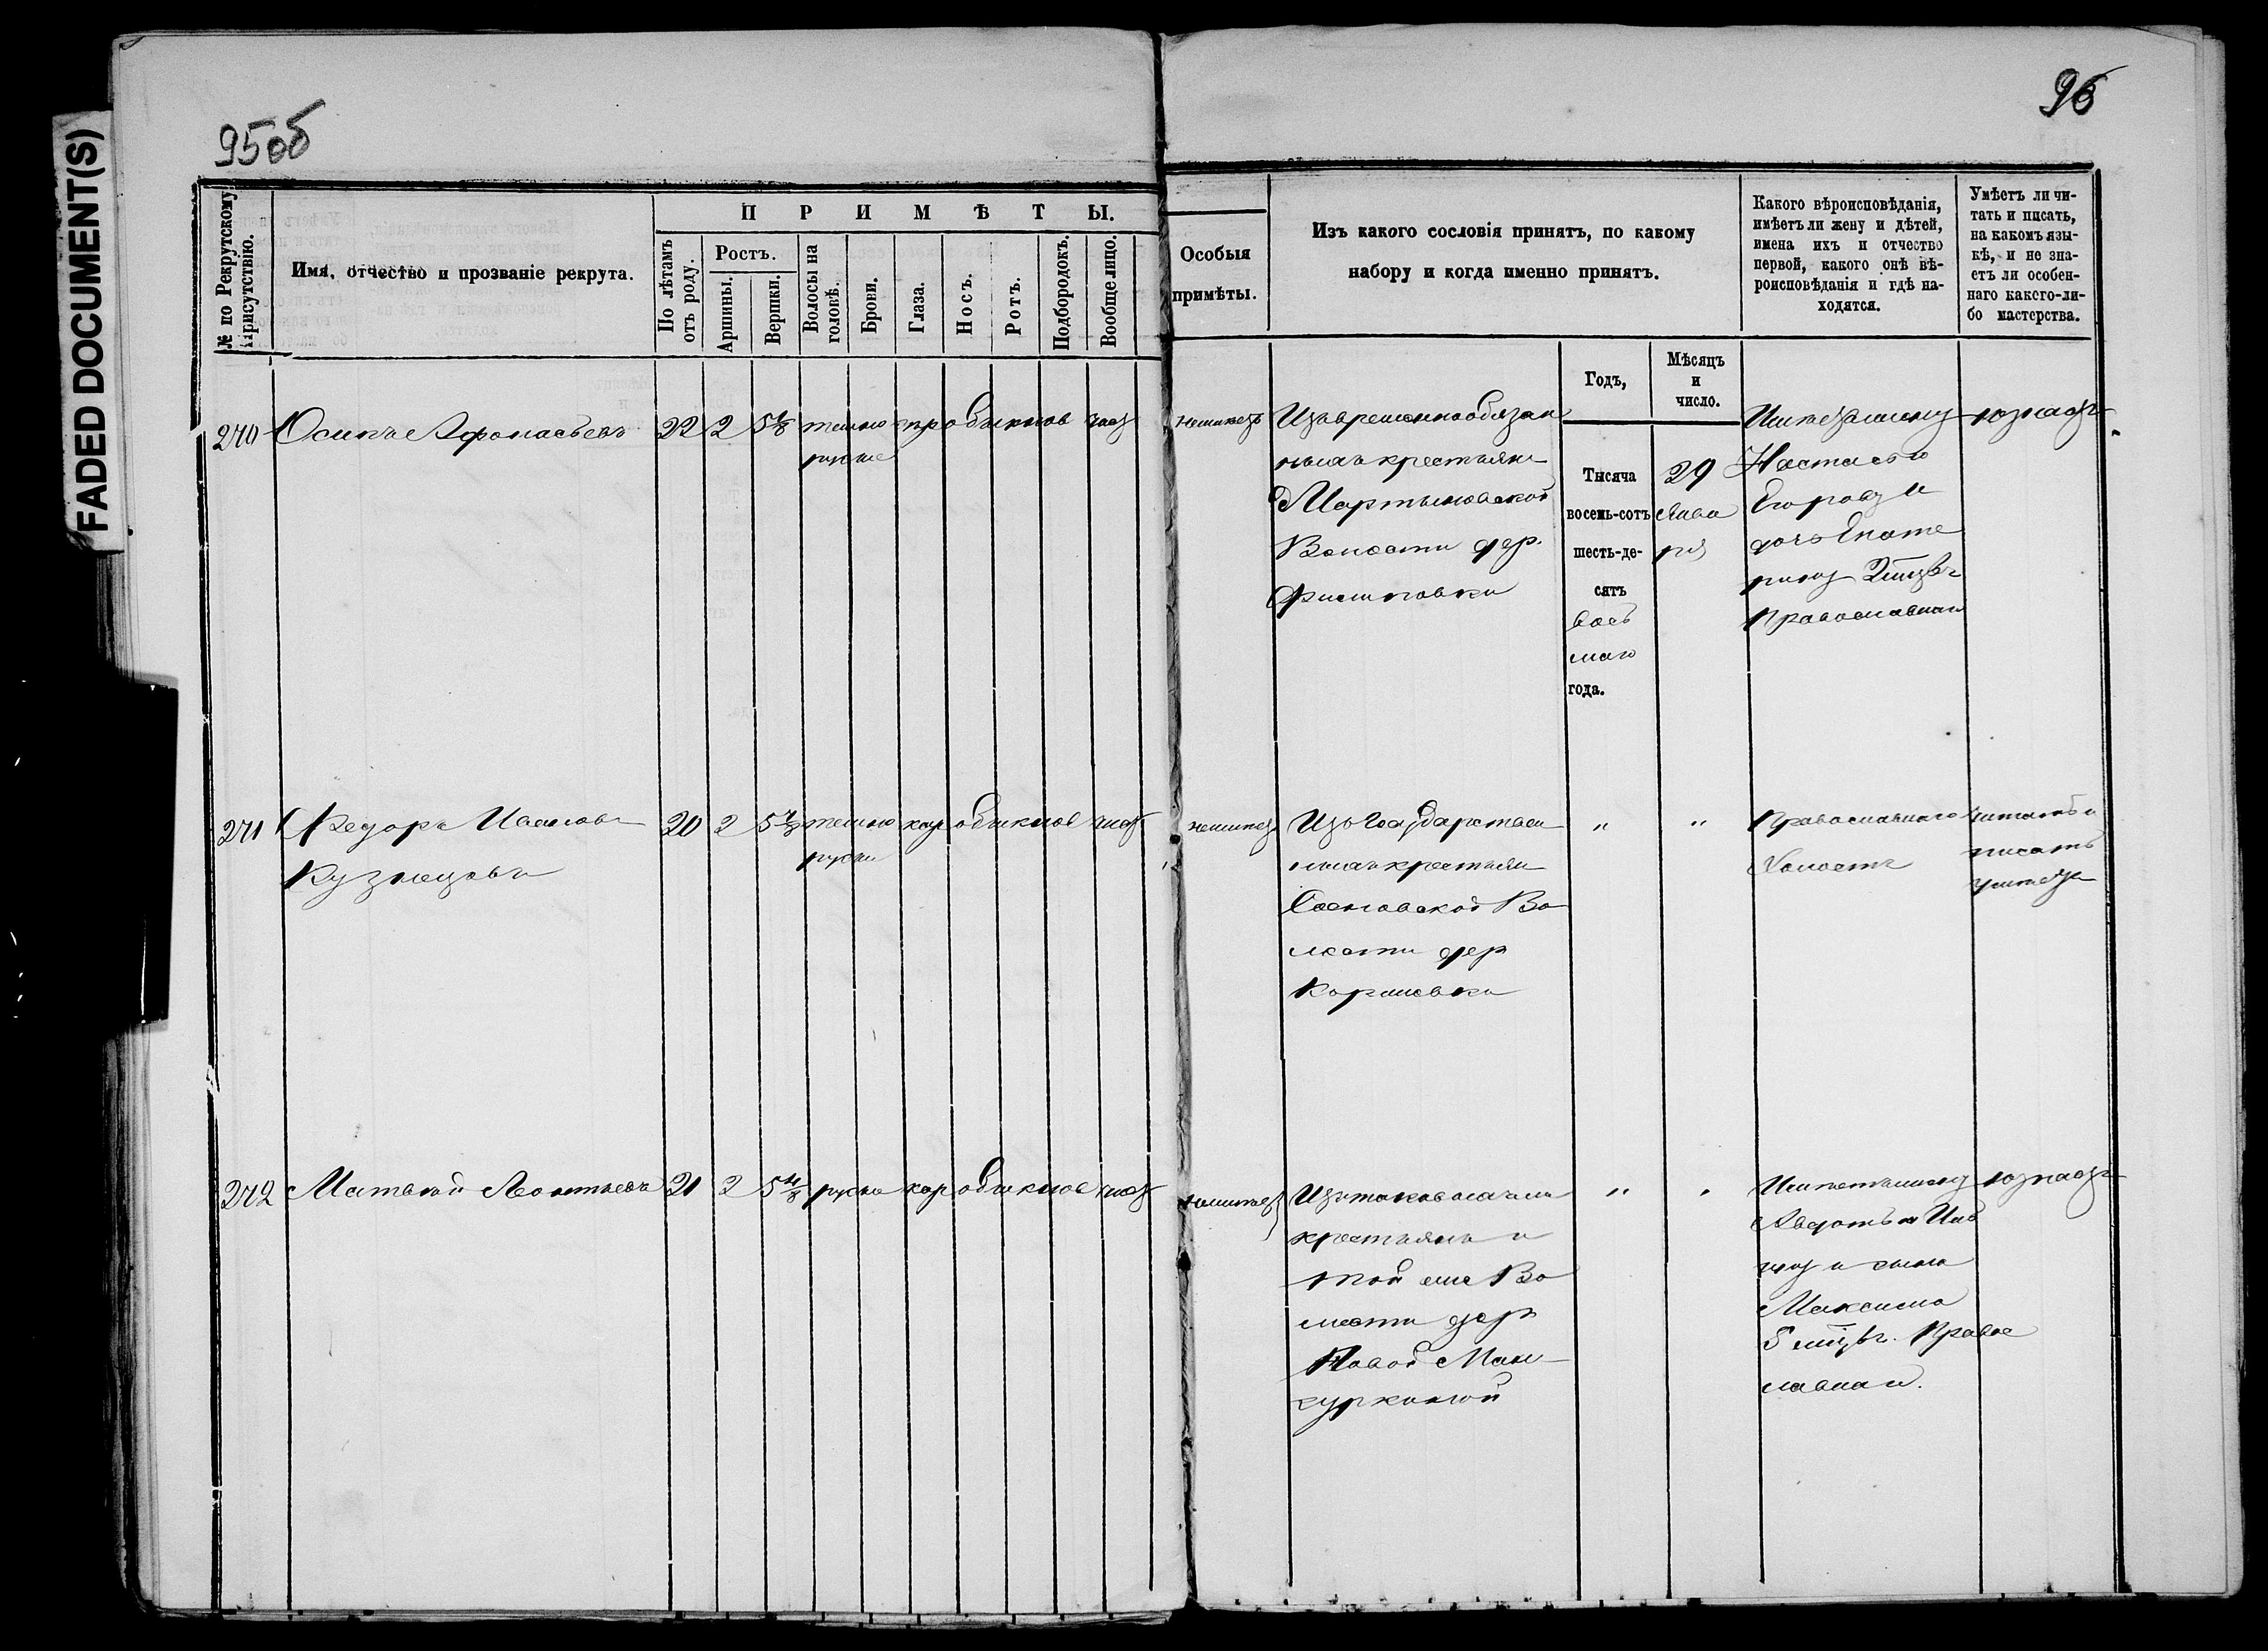 FADED DOCUMENT(S)
95об
96
№ по Рекрутскому Присутствію.
Имя, отчество и прозваніе рекрута.
ПРИМѢТЫ.
По лѣтамъ отъ роду.
Ростъ.
Аршины.
Вершки.
Волосы на головѣ.
Брови.
Глаза.
Носъ.
Ротъ.
Подбородокъ.
Вообще лицо.
Особыя
примѣты.
Изъ какого сословія принятъ, по какому
набору и когда именно принятъ.
Какого вѣроисповѣданія,
имѣетъ ли жену и дѣтей,
имена ихъ и отчество
первой, какого онѣ вѣ-
роисповѣданія и гдѣ на-
ходятся.
Умѣетъ ли чи-
тать и писать,
на какомъ язы-
кѣ, и не зна-
етъ ли особен-
наго какого-ли-
бо мастерства.
Годъ,
Мѣсяцъ
и
число.
270 Осипъ Афонасьевъ 22 2 темно обыкнов чист
русые
Изъ временнообязан
ныхъ крестьян
Мартыновской
Волости дер.
Филиповки
Тысяча
восемь-сотъ
шесть-де-
сятъ
вось
маго
года.
29
Янва
ря
Имѣетъ жену
Настасью
Егорову и
дочь Екате
рину
православная
271 Федоръ Ивановъ 20 2 темно кар обыкнов чист
Кузнецовъ
русые
Изъ Государствен
ныхъ крестьян
Сосновской Во
лости дер
" "
Православнаго
Холостъ
читать и
писать
умѣетъ
272 Матвей Леонтьевъ 21 2 русые кар обыкнов чист
Изъ таковыхъ же
крестьянъ и
той же Во
лости дер
Новой Ман
" "
Имѣетъ жену
Авдотью
и сына
Максима
Право
славная.